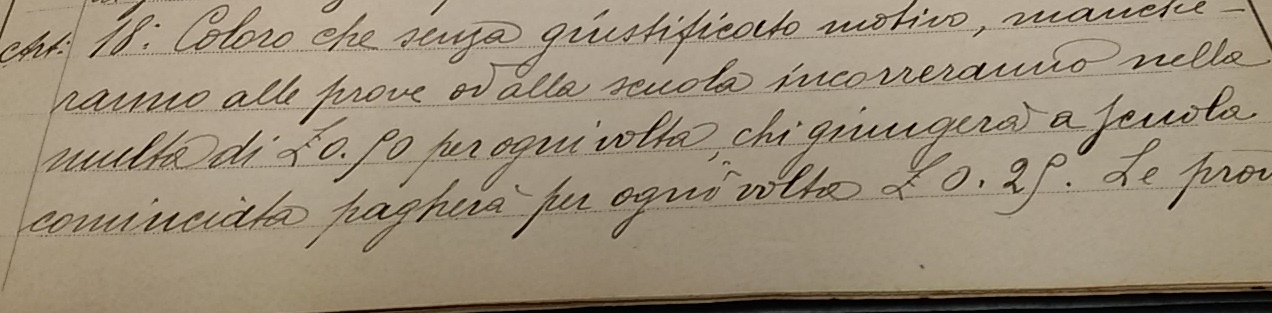 Art: 18: Coloro che senza giustificato motivo, manche-
ranno alle prove od alla scuola incorreranno nella
multa di £ 0.50 per ogni volta, chi giungerà a scuola
cominciata pagherà per ogni volta £ 0.25. Le prov